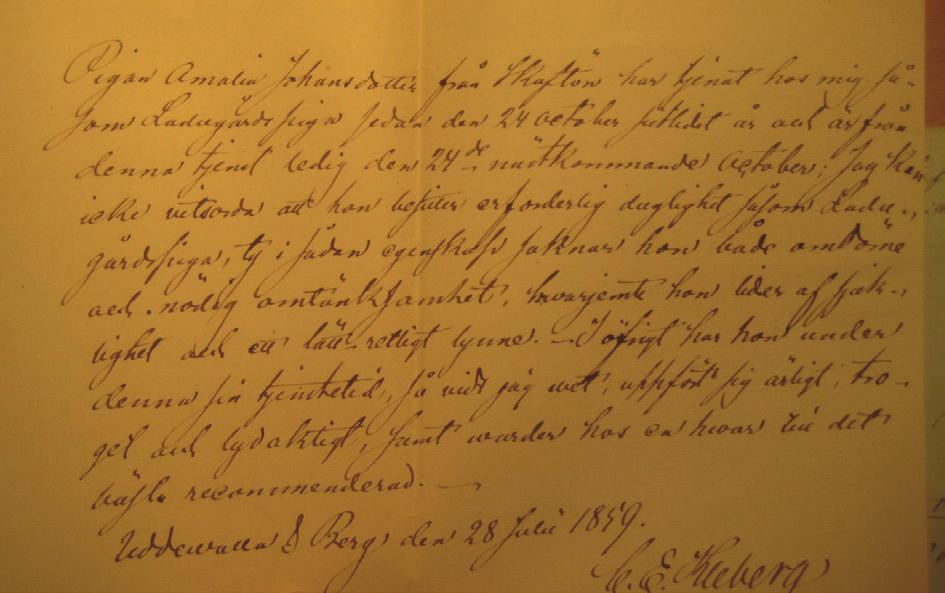 Pigan Amalia Johansdotter från Skaftön har tjenat hos mig så-
som Ladugårdspiga sedan den 24 October sistlidet år och är från
denna tjenst ledig den 24de nästkommande October; Jag kan
icke vitsorda att hon besitter erforderlig duglighet såsom Ladu-
gårdspiga, ty i sådan egenskap saknar hon både omdöme
och nödig omtänksamhet, hvarjemte hon lider af sjuk-
lighet och ett lätt-retligt lynne. — I öfrigt har hon under
denna sin tjenstetid, så vidt jag vet, uppfört sig ärligt, tro-
get och lydaktigt, samt warder hos en hwar till det
bästa recommenderad. —
Uddewalla & Berg den 28 Julii 1859.
C. E. Kleberg